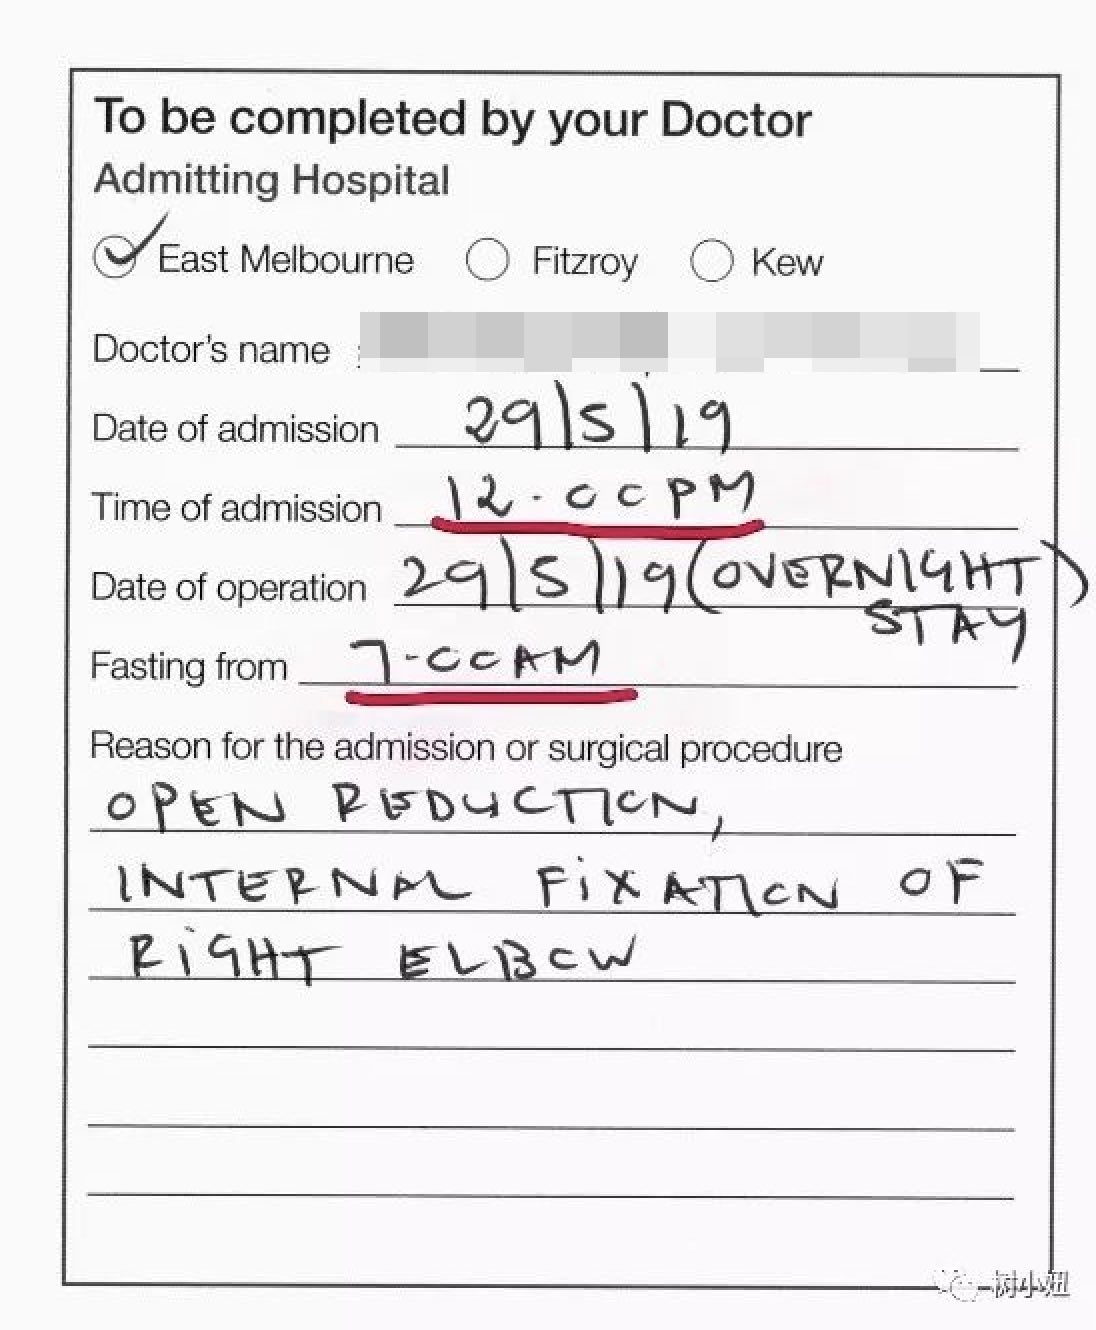 To be completed by your Doctor
Admitting Hospital
East Melbourne Fitzroy Kew
Doctor's name
Date of admission 29/5/19
Time of admission 12.00PM
Date of operation 29/5/19 (OVERNIGHT STAY)
Fasting from 7.00AM
Reason for the admission or surgical procedure
OPEN REDUCTION,
INTERNAL FIXATION OF
RIGHT ELBOW
树小妞